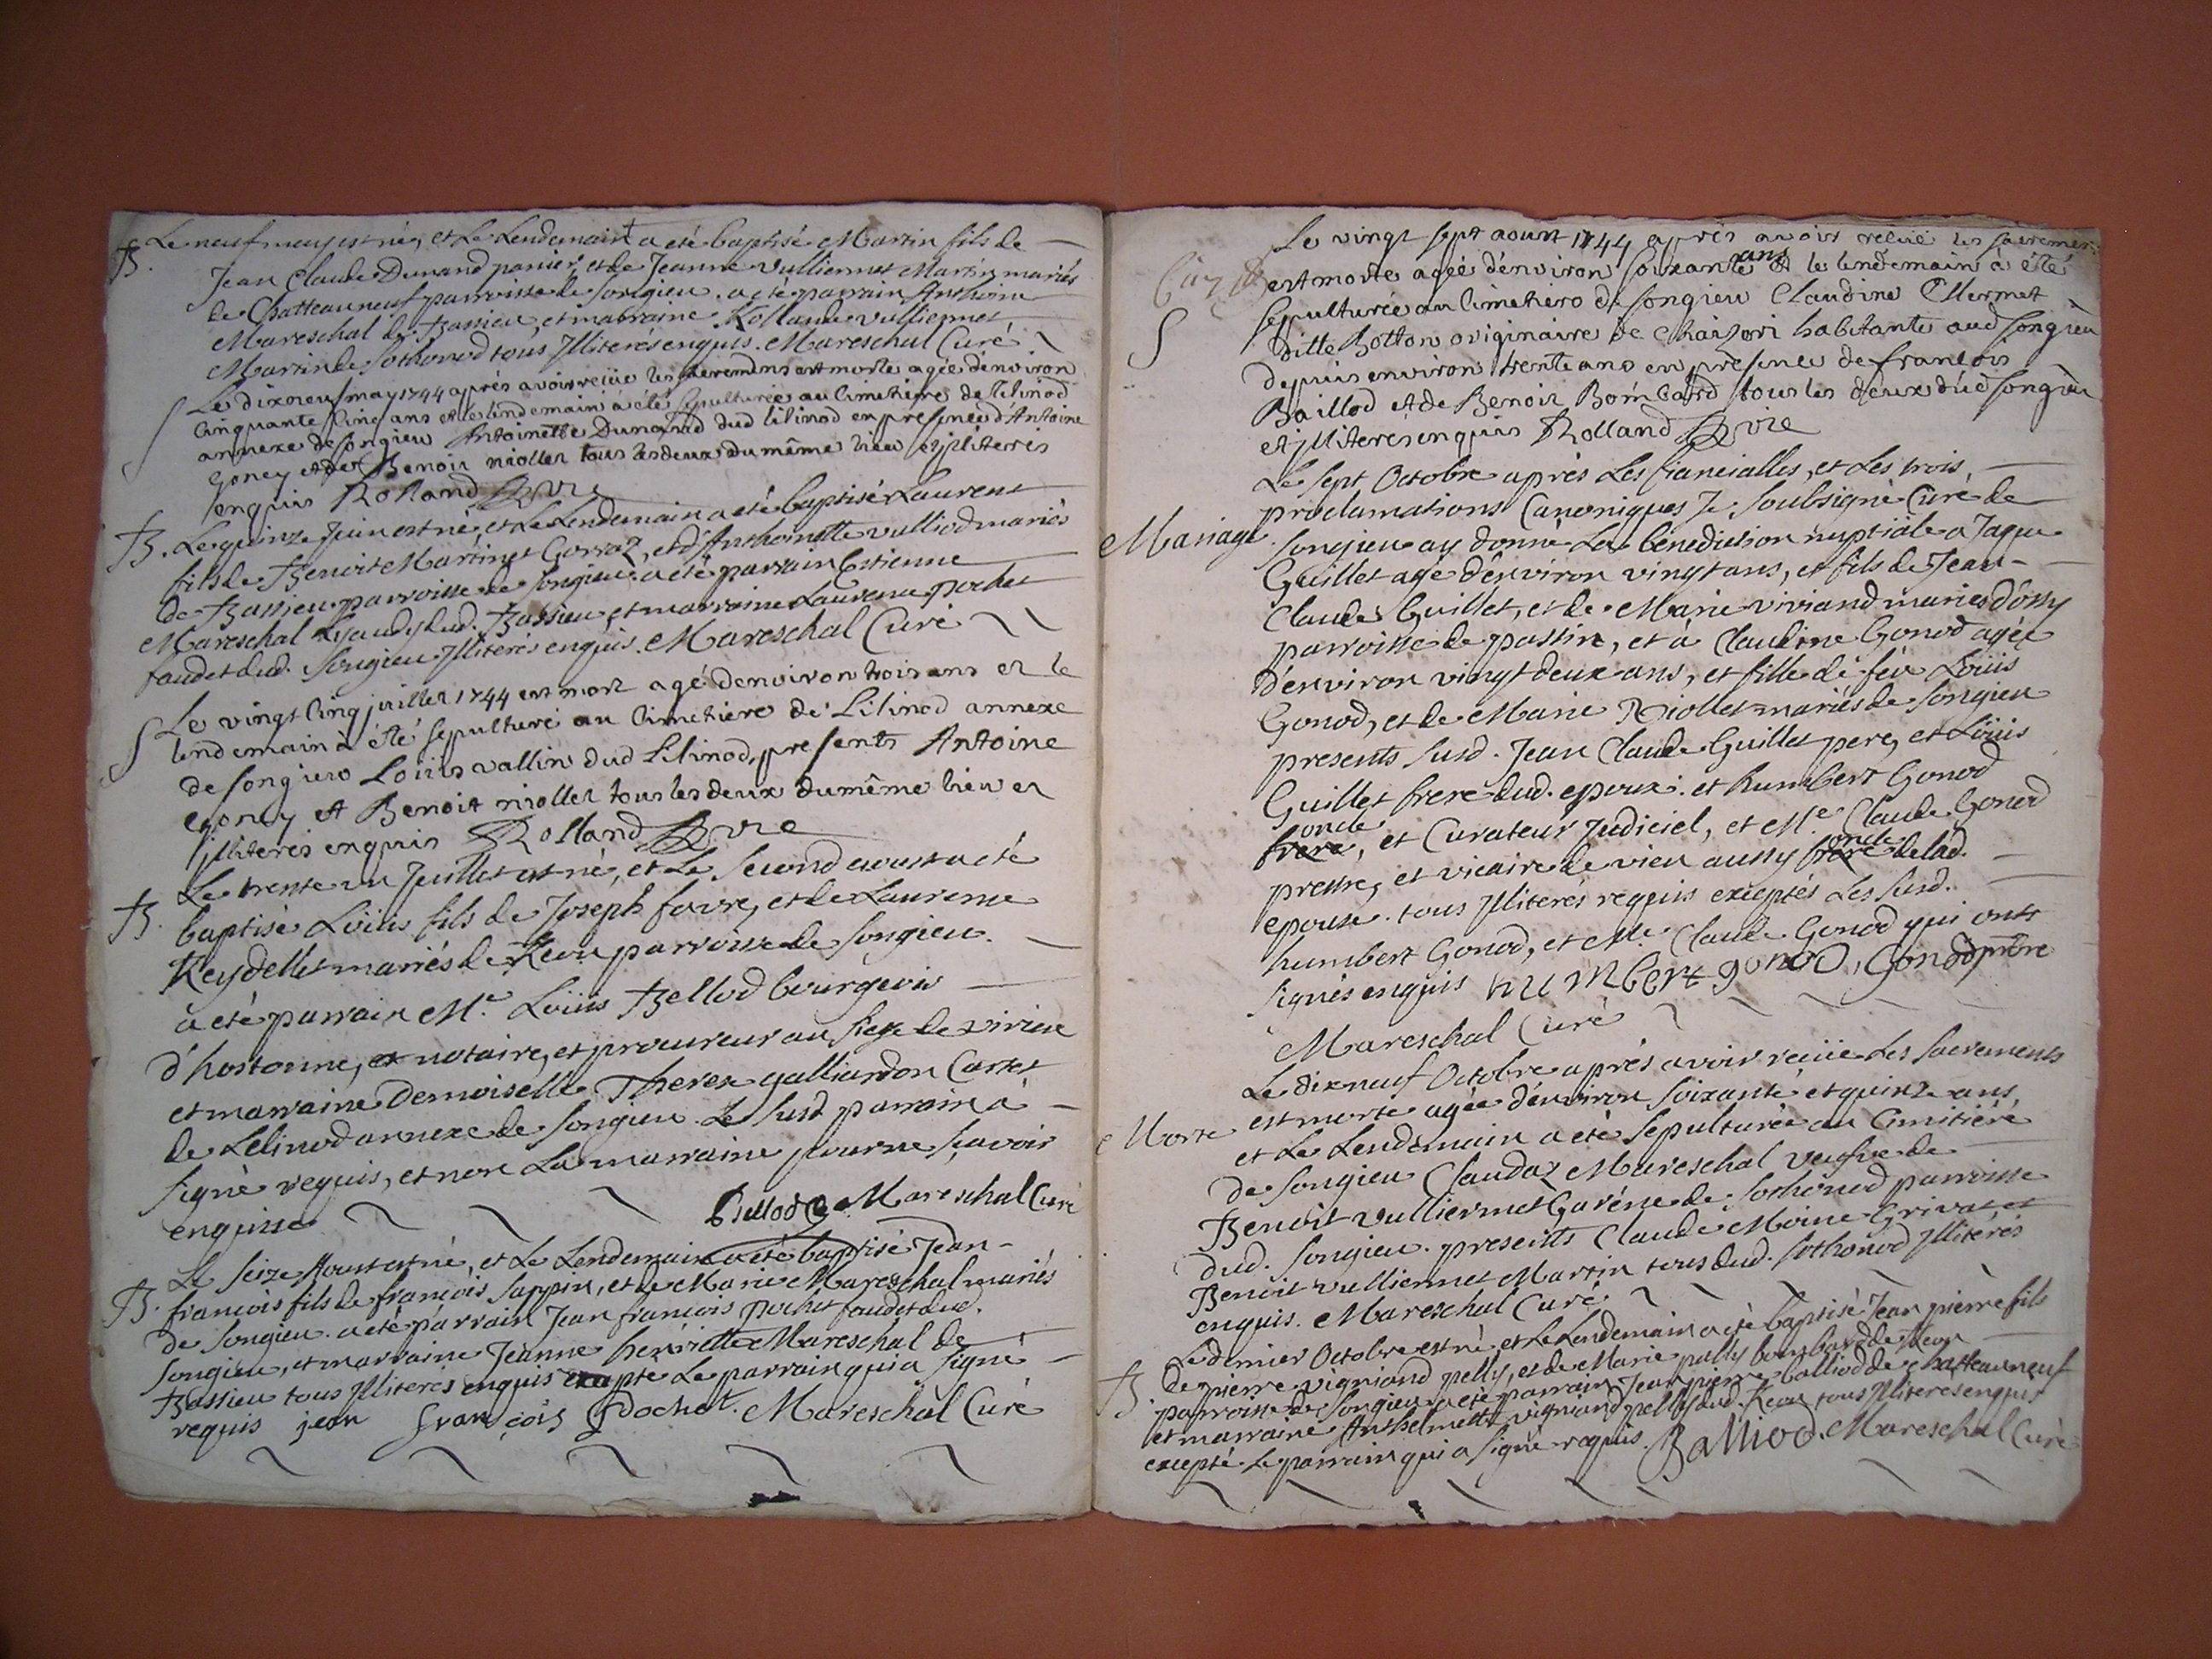 B. Le neuf may est né, et Le Lendemain a eté baptisé Martin fils de
Jean Claude Dunand panier, et de Jeanne Vulliermet Martin mariés
de Chatteauneuf parroisse de songieu. a eté parrain Anthoine
Mareschal de Bassieu, et marraine Rollande Vulliermet
Martin de Sothonod tous Illiterés enquis. Mareschal Curé
S Le dixneuf may 1744 après avoir reçüe les sacremens est morte agée d'environ
Cinquante cinq ans et le lendemain à été sepulturée au cimetiere de lilinod
annexe de songieu Antoinette Dunand dud lilinod en presence d'Antoine
goney et de Benoit niollet tous les deux du même lieu et jlliterés
enquis Rolland Vic
B. Le quinze Juin est né, et Le Lendemain a eté baptisé Laurent
fils de Benoit Martinet Gorraz, et d'Anthoinette Vulliod mariés
de Bassieu parroisse de songieu. a eté parrain Estienne
Mareschal Lyaudy dud. Bassieu et marraine Laurence pochet
faudet dud. Songieu Illiterés enquis. Mareschal Curé
S Le vingt Cinq juillet 1744 est mort agé denviron trois ans et le
lendemain à été sepulturé au cimetiere de Lilinod annexe
de songieu Loüis vallin dud Lilinod, presents Antoine
goney et Benoit niollet tous les deux du même lieu et
jlliterés enquis Rolland Vic
B. Le trente un Juillet est né, et Le second aoust a eté
baptisé Loüis fils de Joseph favre, et de Laurence
Reydellet mariés de Reou parroisse de songieu.
a eté parrain Me. Loüis Bellod bourgeois
d'hostonne, et notaire, et procureur au siege de virieu
et marraine Demoiselle Therese galliardon Cartet
de Lelinod annexe de songieu. Le susd. parrain a
signé requis, et non La marraine pour ne sçavoir
enquise Bellod Mareschal Curé
B. Le seize Aoust est né, et Le Lendemain a eté baptisé Jean-
françois fils de françois sappin, et de Marie Mareschal mariés
de songieu. a eté parrain Jean françois pochet faudet dud.
songieu, et marraine Jeanne henriette Mareschal de
Bassieu tous Illiterés enquis excepté Le parrain qui a signé
requis jean françois Pochet. Mareschal Curé
Le vingt sept aoust 1744 après avoir reçüe les sacremens
est morte agée d'environ soixante ans et le lendemain à été
S sepulturée au cimetiere de songieu Claudine Mermet
ditte Botton originaire de Chaisori habitante aud songieu
depuis environ trente ans en presence de francois
Baillod et de Benoit Bombard tous les deux dud songieu
et jlliterés enquis Rolland Vic
Le sept Octobre après Les fiancialles, et Les trois
proclamations Canoniques Je soubsigné Curé de
Mariage. songieu ay donné La benediction nuptiale a Jaque
Guillet agé d'environ vingt ans, et fils de Jean-
Claude Guillet, et de Marie Viviand mariés d'ossy
parroisse de passin, et à Claudine Gonod agée
d'environ vingt deux ans, et fille de feu Loüis
Gonod, et de Marie Niollet mariés de songieu
presents susd. Jean Claude Guillet pere, et Loüis
Guillet frere dud. epoux. et humbert Gonod
oncle
frere, et Curateur Judiciel, et Me. Claude Gonod
oncle
prestre, et vicaire de vieu aussy frere de lad.
epouse. tous Illiterés requis exceptés Les susd.
humbert Gonod, et Me. Claude Gonod qui ont
signés enquis humbert gonod, Gonod prêtre
Mareschal Curé
Le dixneuf Octobre après avoir reçüe Les sacrements
Morte est morte agée d'environ soixante et quinze ans,
et Le Lendemain a eté sepulturée au Cimitiére
de songieu Claudaz Mareschal veufve de
Benoit Vulliermet Garéne de sothonod parroisse
dud. songieu. presents Claude Moine Grivat, et
Benoit Vulliermet Martin tous dud. sothonod Illiterés
enquis. Mareschal Curé.
Le dernier Octobre est né et Le Lendemain a eté baptisé Jean pierre fils
B. de pierre vigniand pelly, et de Marie pully bombard de Reou
parroisse de songieu. a eté parrain Jean pierre balliod de Chatteauneuf
et marraine Anthelmette vigniand pelly dud. Reou tous Illiterés enquis
excepté Le parrain qui a signé requis. Balliod. Mareschal Curé